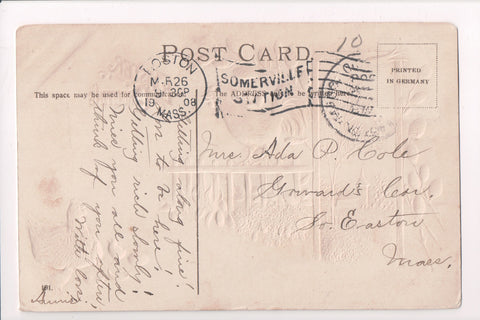 POST CARD
BOSTON
MAR 26
19 08
MASS.
SOMERVILLE
STATION
10
PRINTED
IN GERMANY
This space may be used for communication
The ADDRESS be written here
Mrs. Ada P. Cole
Howard's Cor.
So. Easton
Mass.
Getting along fine!
to be here.
Getting rich slowly!
Miss you all and
think of you often,
With love,
Annie
101.